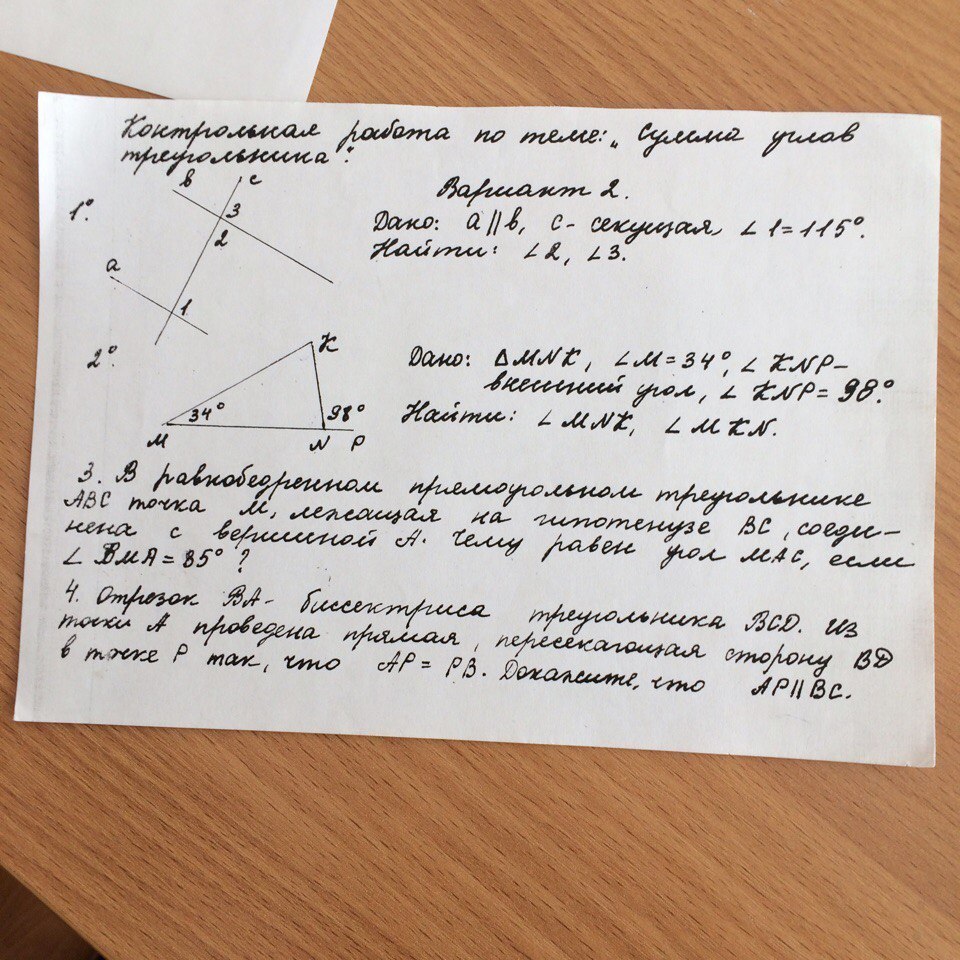 Контрольная работа по теме: „Сумма углов
треугольника".
Вариант 2.
1°.
b
c
3
2
a
1
Дано: a||b, c - секущая, ∠1=115°.
Найти: ∠2, ∠3.
2°
K
34°
98°
M
N P
Дано: ΔMNK, ∠M=34°, ∠KNP-
внешний угол, ∠KNP=98°.
Найти: ∠MNK, ∠MKN.
3. В равнобедренном прямоугольном треугольнике
ABC точка M, лежащая на гипотенузе BC, соеди-
нена с вершиной A. Чему равен угол MAC, если
∠BMA=85°?
4. Отрезок BA- биссектриса треугольника BCD. Из
точки A проведена прямая, пересекающая сторону BD
в точке P так, что AP=PB. Докажите, что AP||BC.